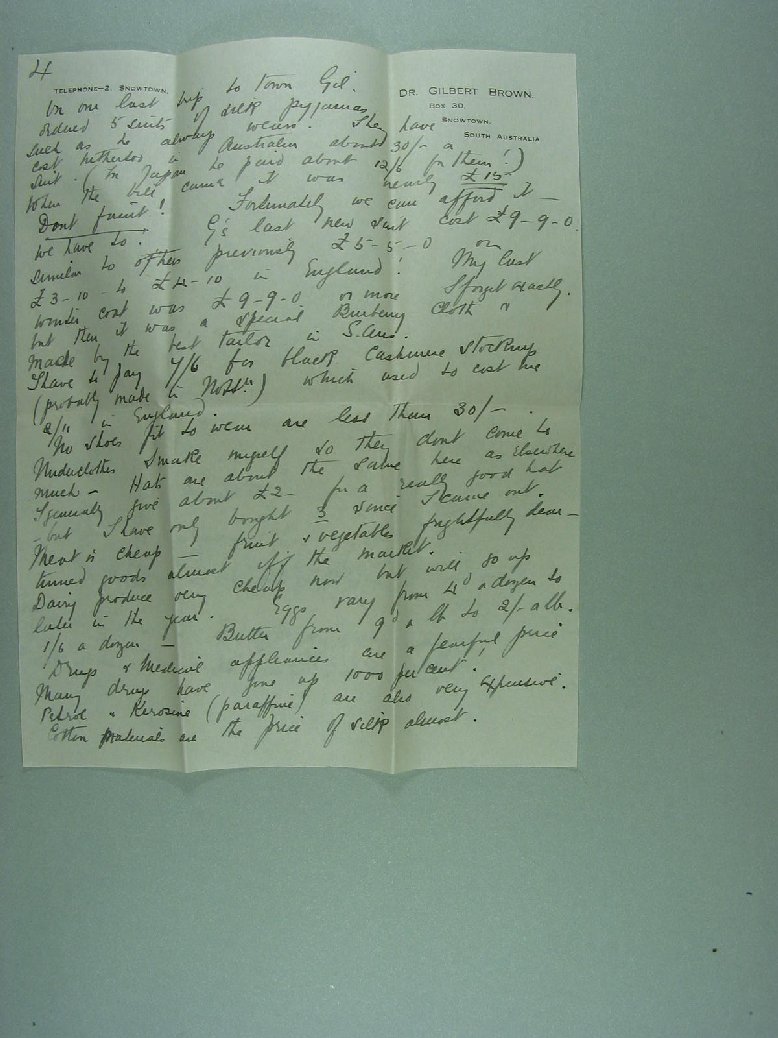 4
TELEPHONE-2, SNOWTOWN.
DR. GILBERT BROWN.
BOX 30,
SNOWTOWN,
SOUTH AUSTRALIA
On our last trip to town Gil.
ordered 5 suits of silk pyjamas
such as he always wears. They have
cost hitherto in Australia about 30/- a
suit. (In Japan he paid about 12/6 for them!)
When the bill came it was nearly £15
Dont faint! Fortunately we can afford it —
we have to. G's last new suit cost £9-9-0
similar to others previously £5-5-0 or
£3-10 to £4-10 in England! My last
winter coat was £9-9-0 or more I forget exactly.
but then it was a special Burberry cloth &
made by the best tailor in S. Aus.
I have to pay 7/6 for black Cashmere stockings
(probably made in Notts) which used to cost me
2/11 in England.
No shoes fit to wear are less than 30/-.
Underclothes I make myself so they dont come to
much — Hats are about the same here as elsewhere
I generally give about £2 - for a really good hat
- but I have only bought 3 since I came out.
Meat is cheap — fruit & vegetables frightfully dear —
tinned goods almost off the market.
Dairy produce very cheap now but will go up
later in the year. Eggs vary from 4d a dozen to
1/6 a dozen — Butter from 9d a lb to 2/- a lb.
Drugs & Medical appliances are a fearful price
Many drugs have gone up 1000 per cent!
Petrol & Kerosine (paraffine) are also very expensive.
Cotton materials are the price of silk almost.